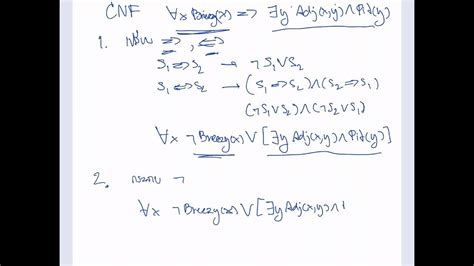 CNF ∀x Breezy(x) => ∃y Adj(x,y) ∧ Pit(y)
1. =>, <=>
S₁ => S₂ → ¬S₁ ∨ S₂
S₁ <=> S₂ → (S₁ => S₂) ∧ (S₂ => S₁)
(¬S₁ ∨ S₂) ∧ (¬S₂ ∨ S₁)
∀x ¬Breezy(x) ∨ [∃y Adj(x,y) ∧ Pit(y)]
2. ¬
∀x ¬Breezy(x) ∨ [∃y Adj(x,y) ∧